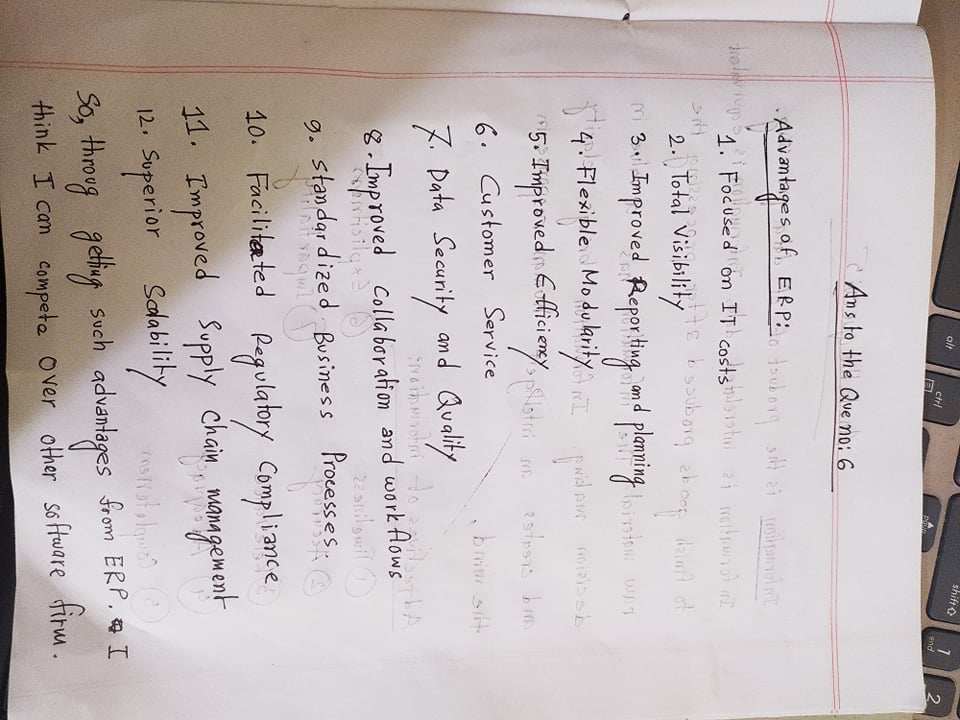 alt
ctrl
shift
1
end
2
pgup
Ans to the Que no: 6
Advantages of ERP:
1. Focused on IT costs
2. Total Visibility
3. Improved Reporting and planning
4. Flexible Modularity
5. Improved Efficiency
6. Customer Service
7. Data Security and Quality
8. Improved Collaboration and workflows
9. Standardized Business Processes.
10. Facilitated Regulatory Compliance
11. Improved Supply Chain management
12. Superior Scalability
So, throug getting such advantages from ERP. I
think I can compete over other software firm.